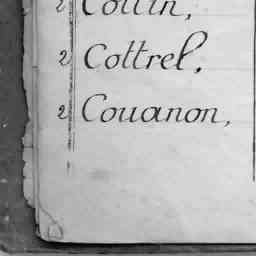 2 Collin,
2 Cottrel,
2 Couanon,